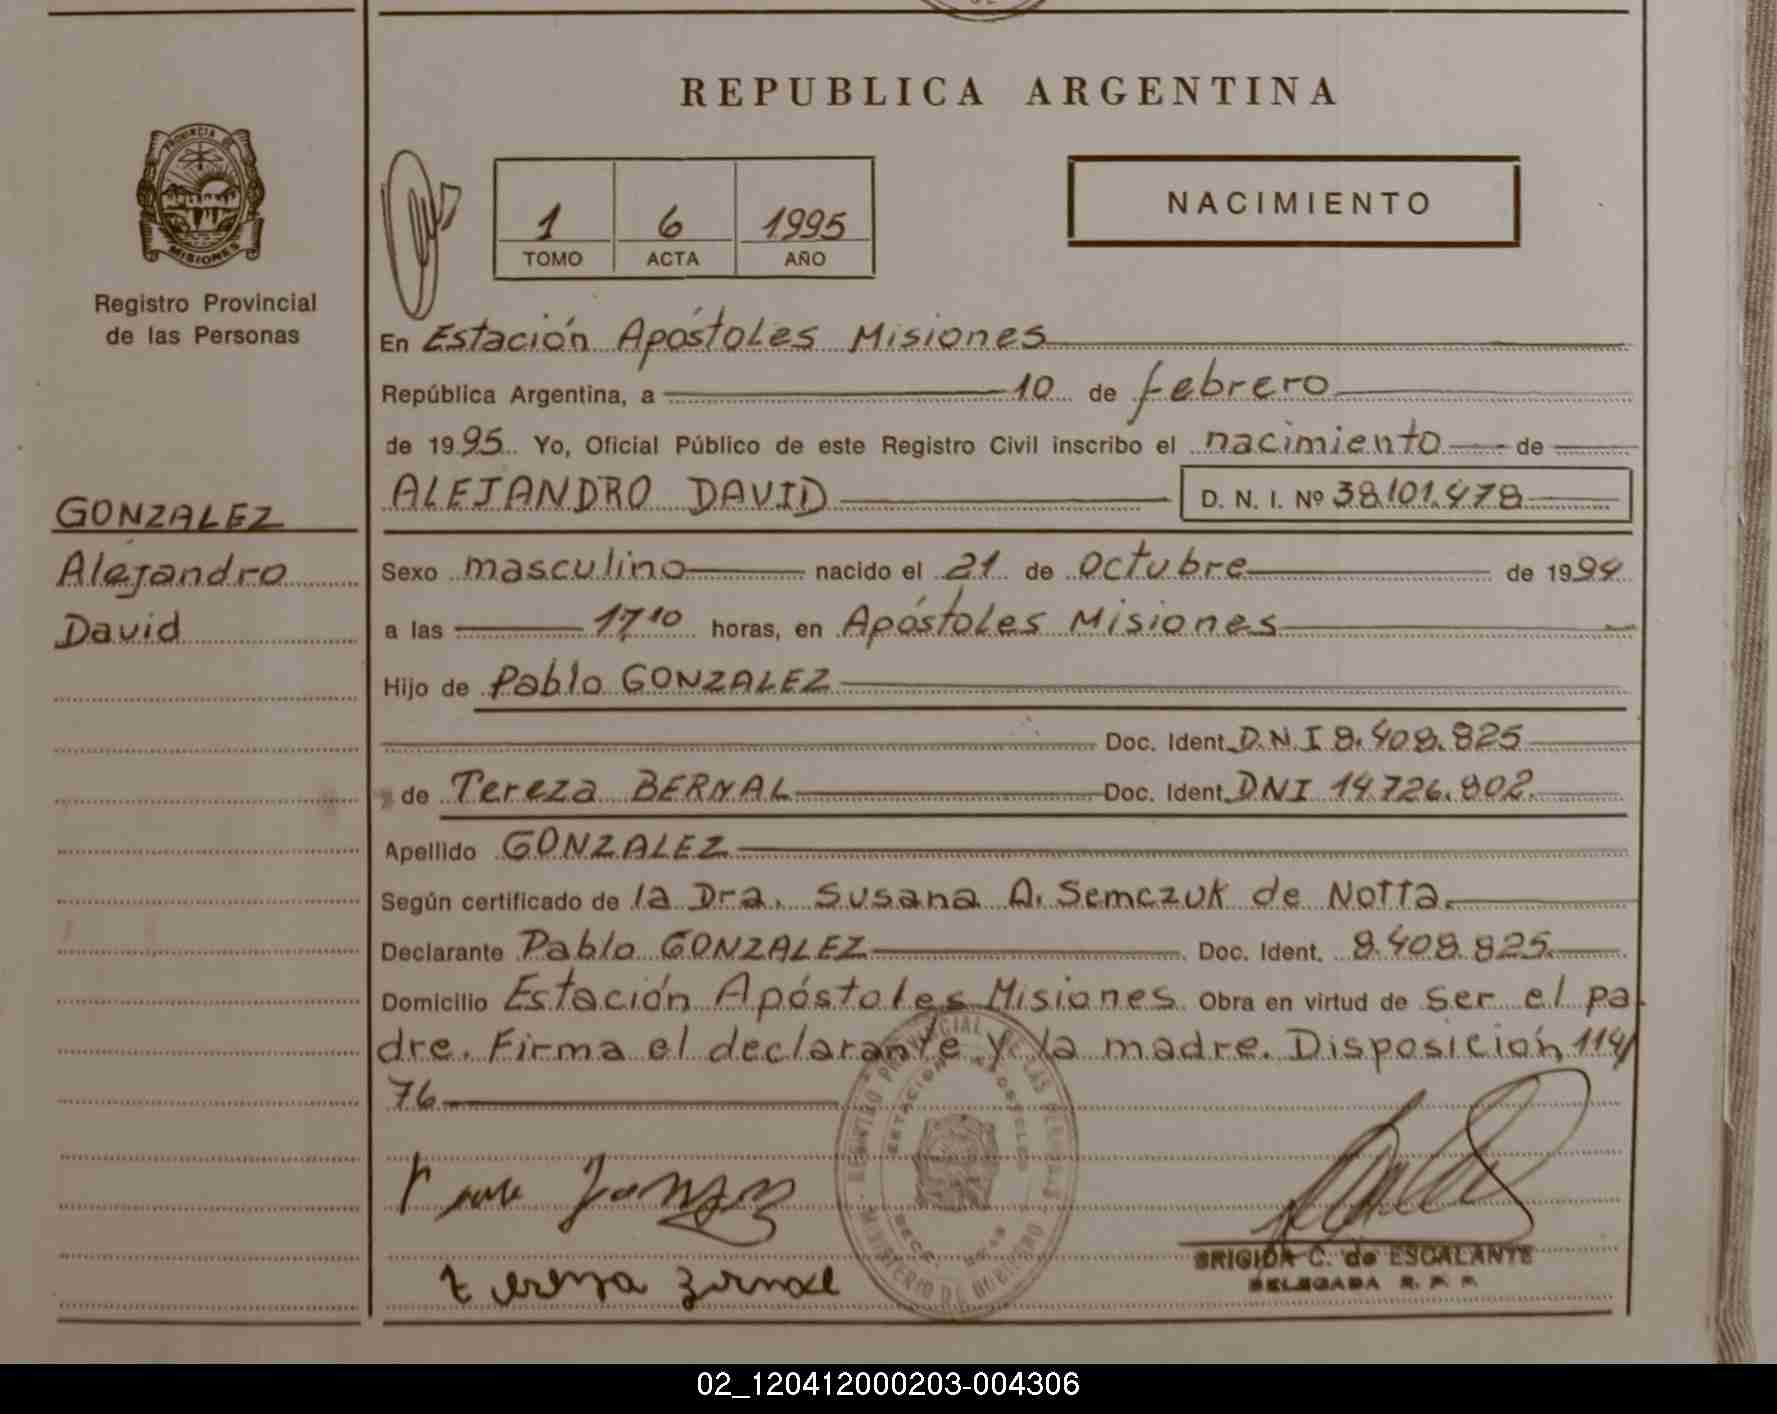 REPUBLICA ARGENTINA
PROVINCIA DE
MISIONES
Registro Provincial
de las Personas
1 6 1995
TOMO ACTA AÑO
NACIMIENTO
En Estación Apóstoles Misiones
República Argentina, a 10 de febrero
de 1995 Yo, Oficial Público de este Registro Civil inscribo el nacimiento de
ALEJANDRO DAVID D. N. I. Nº 38.101.478
GONZALEZ
Alejandro
David
Sexo masculino nacido el 21 de Octubre de 1994
a las 17 10 horas, en Apóstoles Misiones
Hijo de Pablo GONZALEZ
Doc. Ident. D.N.I 8.408.825
de Tereza BERNAL Doc. Ident. DNI 14.726.802.
Apellido GONZALEZ
Según certificado de la Dra. Susana A. Semczuk de Notta.
Declarante Pablo GONZALEZ Doc. Ident. 8.408.825.
Domicilio Estación Apóstoles Misiones Obra en virtud de ser el pa
dre. Firma el declarante y la madre. Disposición 114/
76
REGISTRO PROVINCIAL DE LAS PERSONAS
MINISTERIO DE GOBIERNO
ESTACION APOSTOLES
BRIGIDA C. de ESCALANTE
DELEGADA R. P. P.
02_120412000203-004306